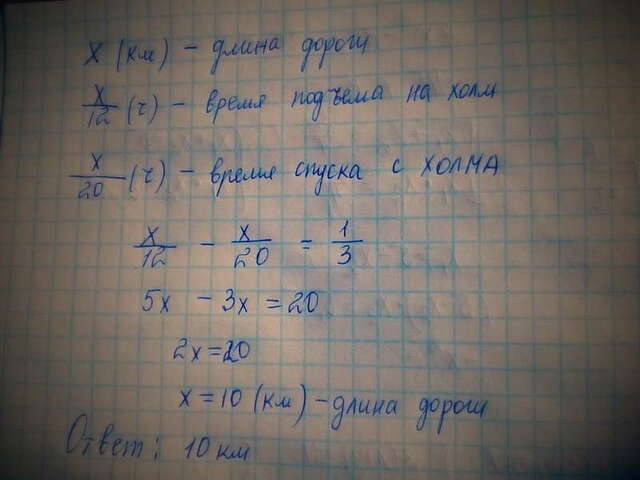 x (км) – длина дороги
x/12 (ч) – время подъема на холм
x/20 (ч) – время спуска с ХОЛМА
x/12 – x/20 = 1/3
5x – 3x = 20
2x = 20
x = 10 (км) – длина дороги
Ответ: 10 км